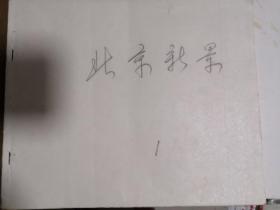 北京新景
1